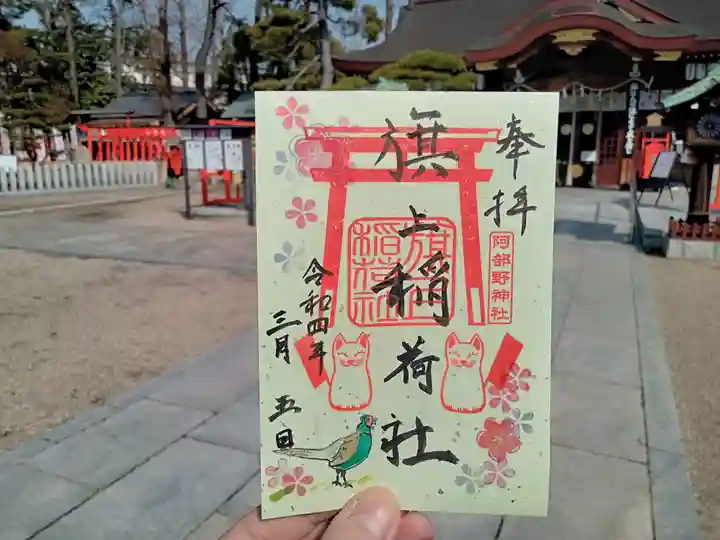 奉拝
阿部野神社
旗上稲荷社
旗上稲荷社
令和四年
三月五日